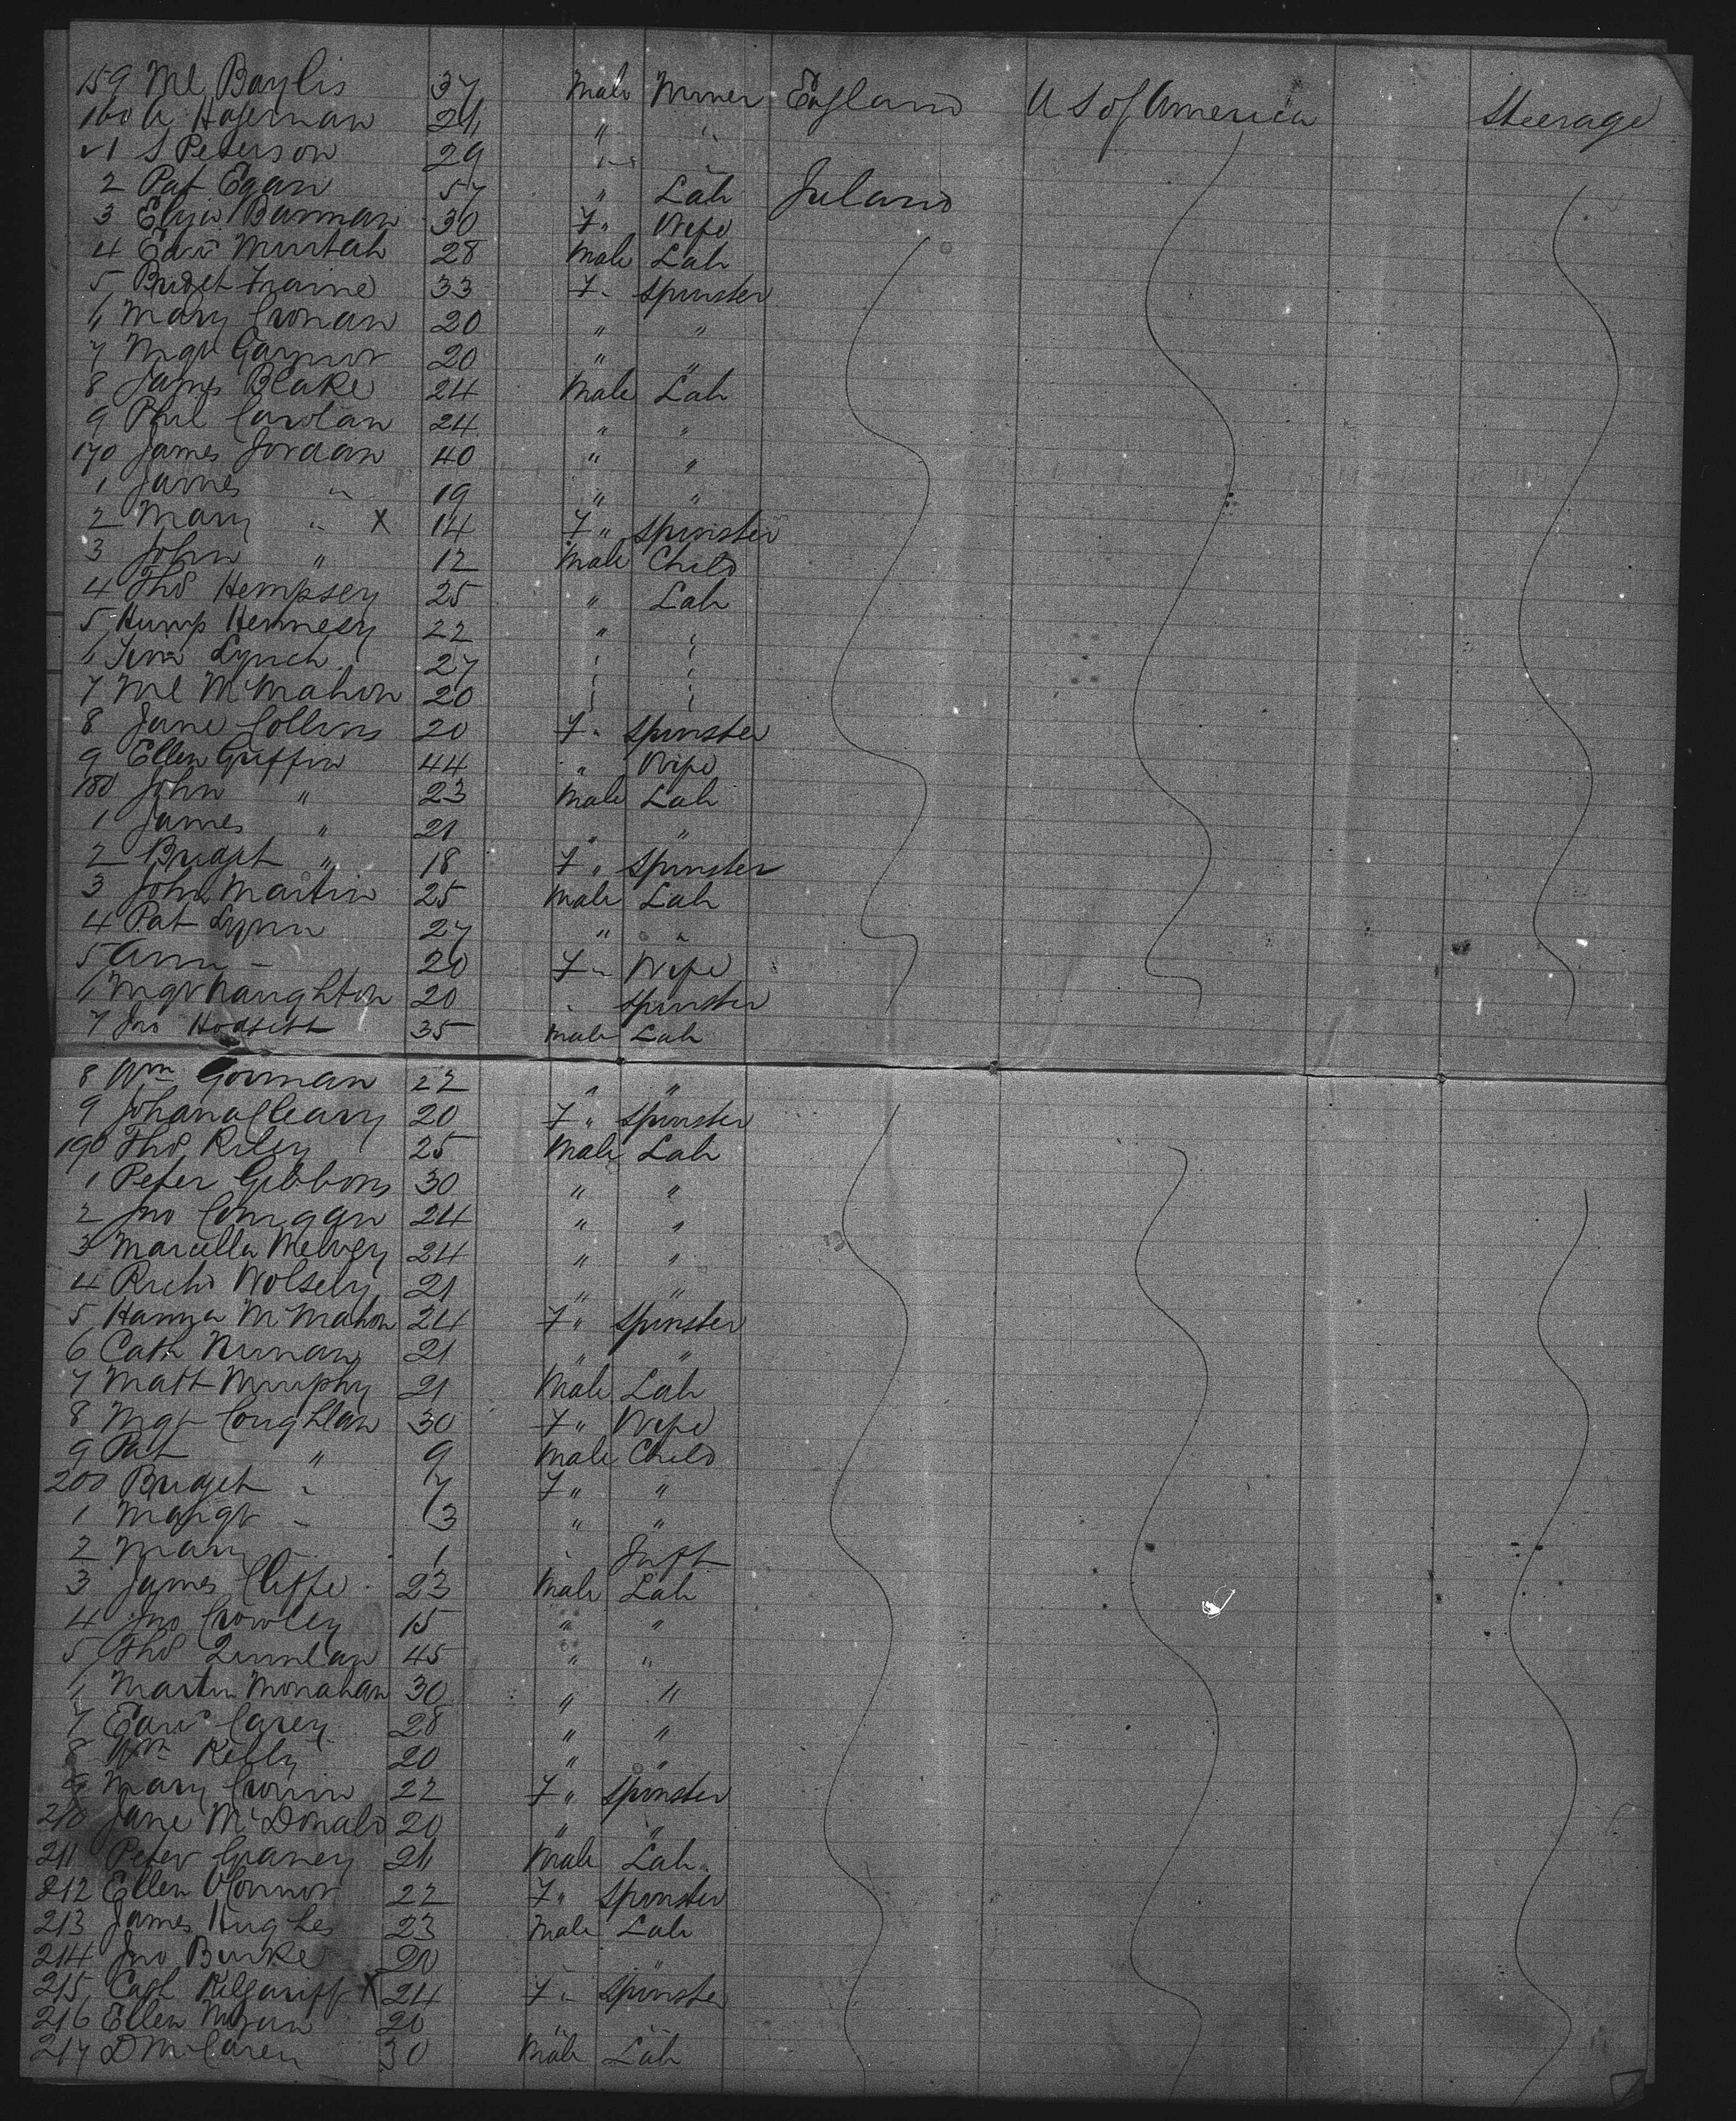 159 Ml Baylis 37 Male Miner England U S of America Steerage
160 A Hagerman 26 " "
✓1 S Peterson 29 " "
2 Pat Egan 57 " Lab Ireland
3 Eliza Bannan 30 F" Wife
4 Edwd Murtah 28 Male Lab
5 Bridget 33 F" Spinster
6 Mary Cronan 20 " "
7 Mgt Gaynor 20 " "
8 James Blake 24 Male Lab
9 Phil Carolan 24 " "
170 James Jordan 40 " "
1 James " 19 " "
2 Mary " X 14 F" Spinster
3 John " 12 Male Child
4 Thos Hempsey 25 " Lab
5 Hump Hennesy 22 " "
6 Jim Lynch 27 " "
7 Ml McMahon 20 " "
8 Jane Collins 20 F" Spinster
9 Ellen Griffin 44 " Wife
180 John " 23 Male Lab
1 James " 21 " "
2 Bridget " 18 F" Spinster
3 John Martin 25 Male Lab
4 Pat Lynn 27 " "
5 Ann - 20 F" Wife
6 Mgt Naughton 20 " Spinster
7 Jno 35 Male Lab
8 Wm Gorman 22 " "
9 Johana Cleary 20 F" Spinster
190 Thos Riley 25 Male Lab
1 Peter Gibbons 30 " "
2 Jno Corrigan 24 " "
3 Marcella Melvey 24 " "
4 Richd Wolsely 21 " "
5 Hanna McMahon 24 F" Spinster
6 Cath Nunan 21 " "
7 Matt Murphy 21 Male Lab
8 Mgt Coughlan 30 F" Wife
9 Pat " 9 Male Child
200 Bridget " 7 F" "
1 Margt " 3 " "
2 Mary " 1 " Inft
3 James Cliffe 23 Male Lab
4 Jno Crowley 15 " "
5 Thos Quinlan 45 " "
6 Martin Monahan 30 " "
7 Edwd Carey 28 " "
8 Wm Kelly 20 " "
9 Mary Cronin 22 F" Spinster
210 Jane McDonald 20 " "
211 Peter Graney 26 Male Lab
212 Ellen OConnor 22 F" Spinster
213 James Hughes 23 Male Lab
214 Jno Burke 20 " "
215 Cath Kilgariff X 24 F" Spinster
216 Ellen Moran 20 " "
217 D McCaren 30 Male Lab